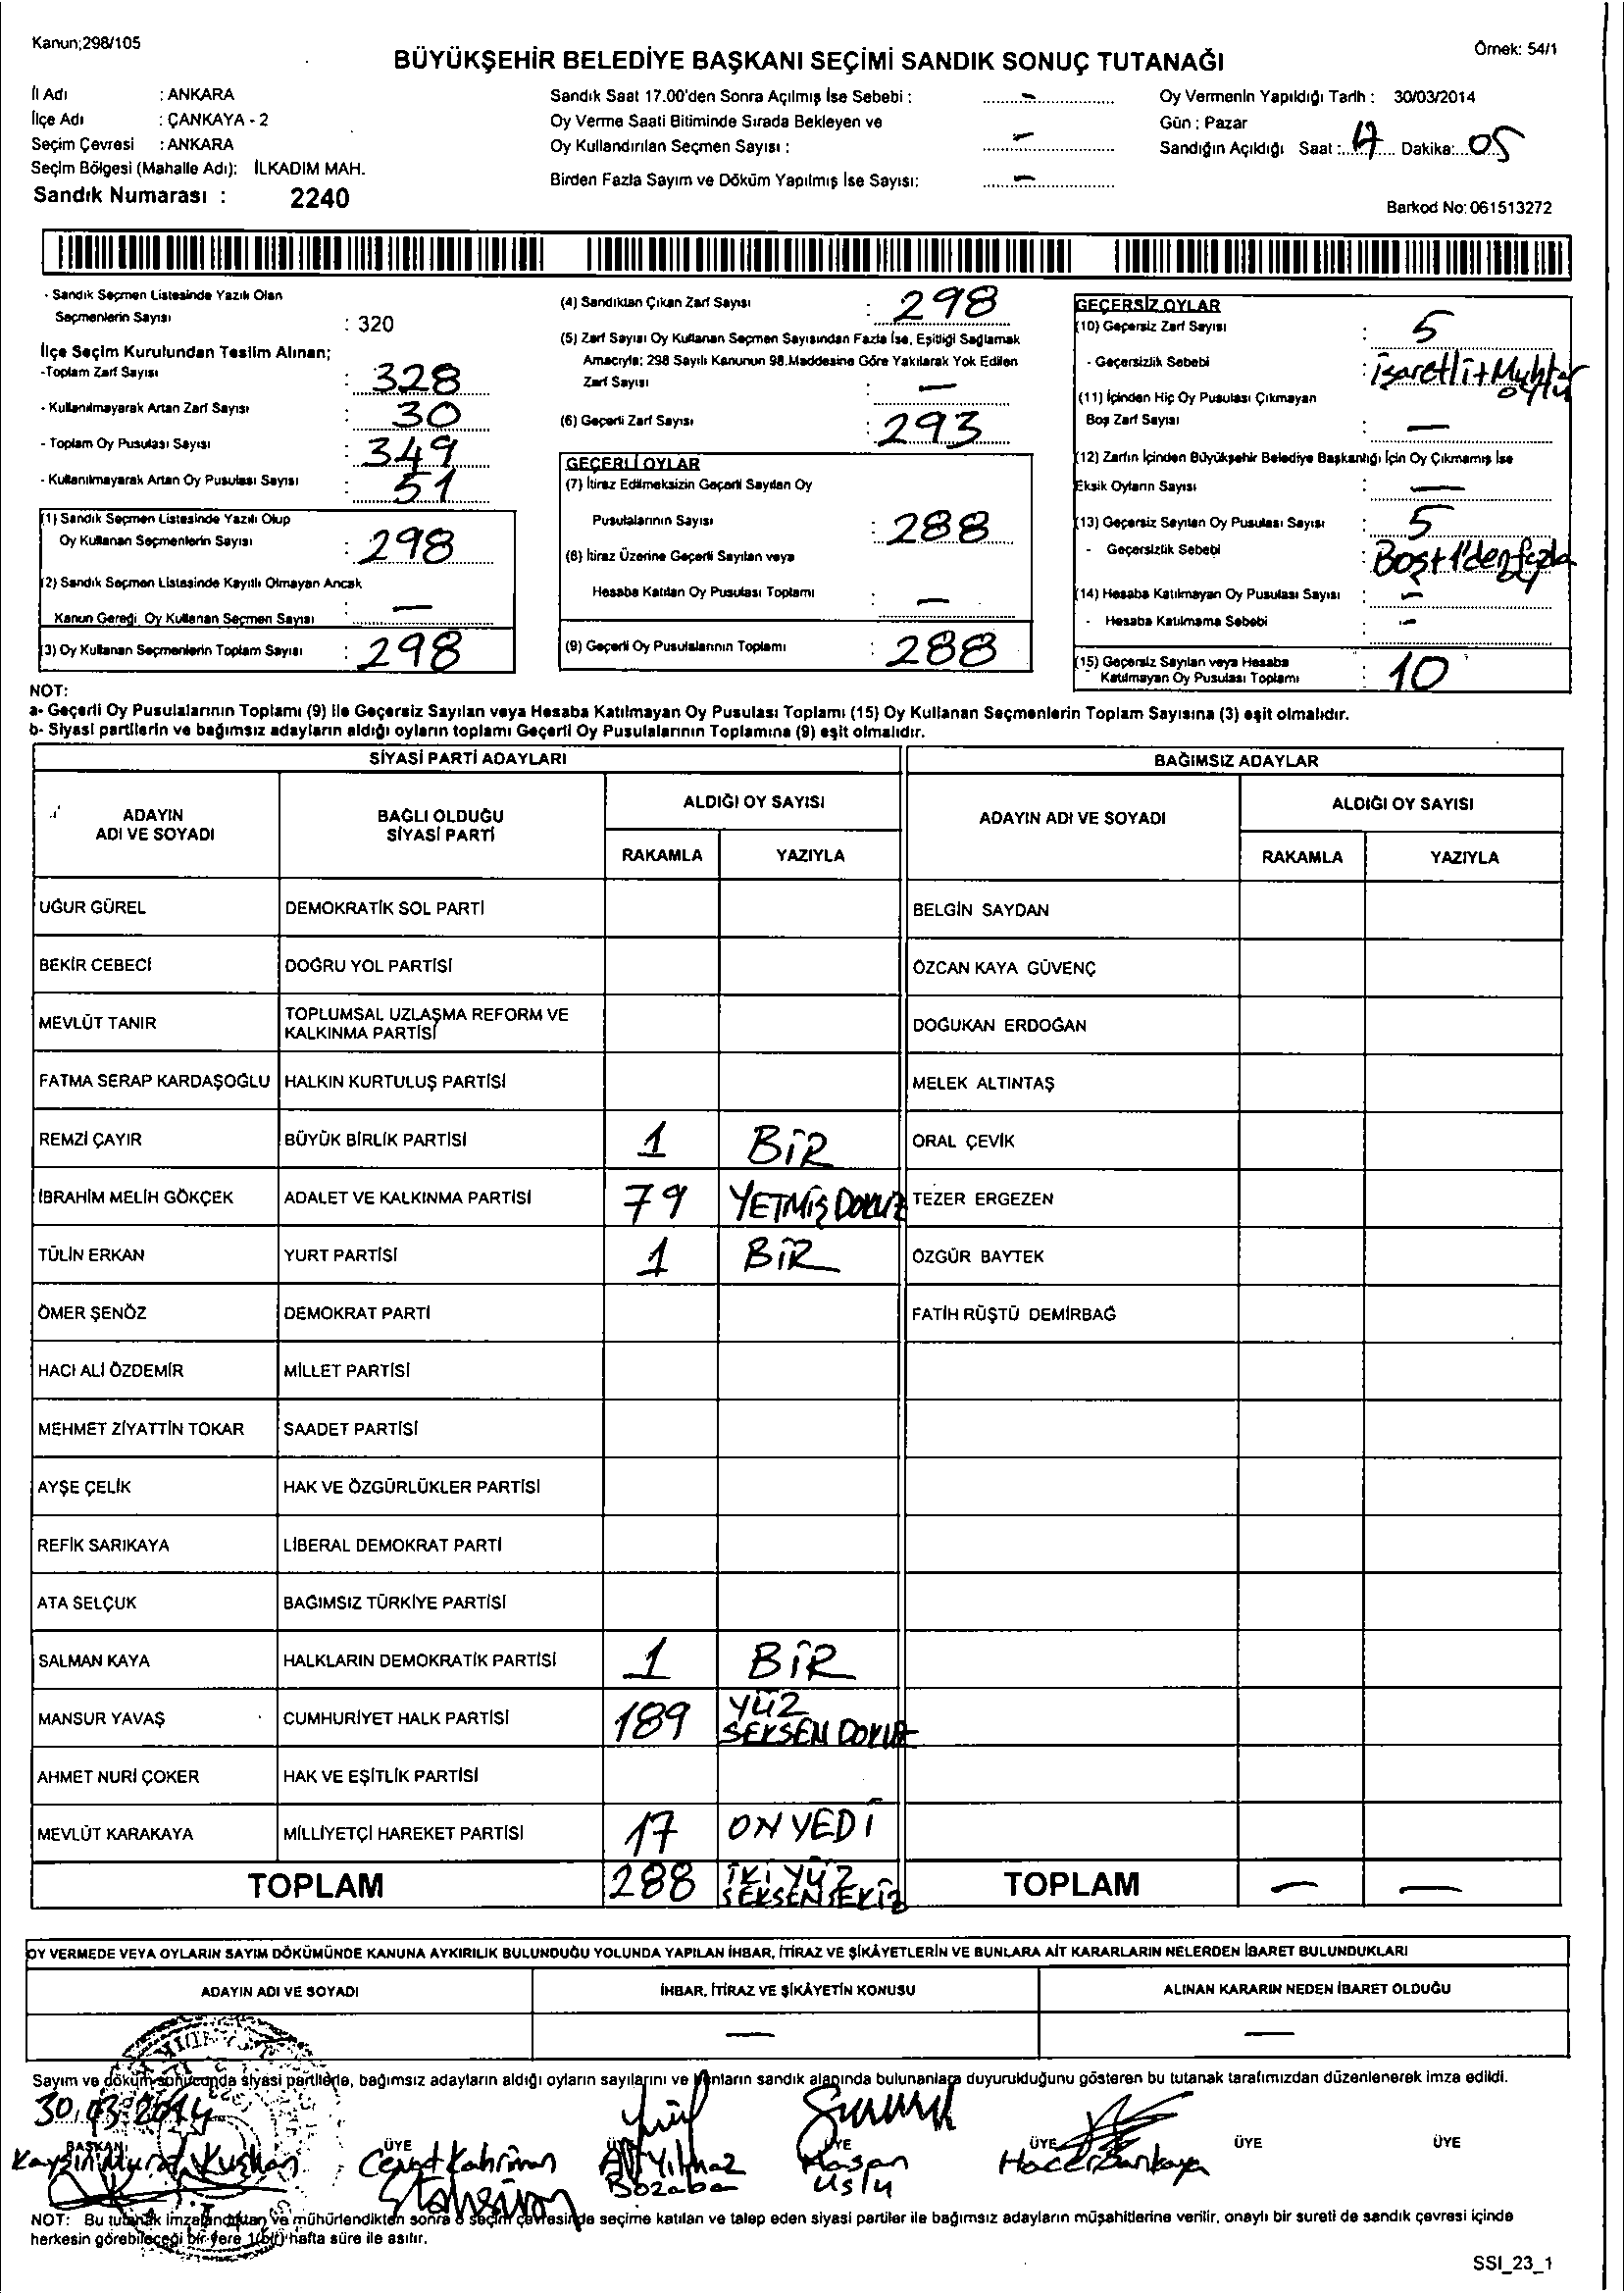 Kanun;298/105
Örnek: 54/1
BÜYÜKŞEHİR BELEDİYE BAŞKANI SEÇİMİ SANDIK SONUÇ TUTANAĞI
İl Adı : ANKARA
İlçe Adı : ÇANKAYA - 2
Seçim Çevresi : ANKARA
Seçim Bölgesi (Mahalle Adı): İLKADIM MAH.
Sandık Numarası : 2240
Sandık Saat 17.00'den Sonra Açılmış İse Sebebi : –
Oy Verme Saati Bitiminde Sırada Bekleyen ve
Oy Kullandırılan Seçmen Sayısı : –
Birden Fazla Sayım ve Döküm Yapılmış İse Sayısı: –
Oy Vermenin Yapıldığı Tarih : 30/03/2014
Gün : Pazar
Sandığın Açıldığı Saat : 17 Dakika: 05
Barkod No: 061513272
- Sandık Seçmen Listesinde Yazılı Olan
Seçmenlerin Sayısı : 320
İlçe Seçim Kurulundan Teslim Alınan;
-Toplam Zarf Sayısı : 328
- Kullanılmayarak Artan Zarf Sayısı : 30
- Toplam Oy Pusulası Sayısı : 349
- Kullanılmayarak Artan Oy Pusulası Sayısı : 51
(1) Sandık Seçmen Listesinde Yazılı Olup
Oy Kullanan Seçmenlerin Sayısı : 298
(2) Sandık Seçmen Listesinde Kayıtlı Olmayan Ancak
Kanun Gereği Oy Kullanan Seçmen Sayısı : –
(3) Oy Kullanan Seçmenlerin Toplam Sayısı : 298
(4) Sandıktan Çıkan Zarf Sayısı : 298
(5) Zarf Sayısı Oy Kullanan Seçmen Sayısından Fazla İse, Eşitliği Sağlamak
Amacıyla; 298 Sayılı Kanunun 98.Maddesine Göre Yakılarak Yok Edilen
Zarf Sayısı : –
(6) Geçerli Zarf Sayısı : 293
GEÇERLİ OYLAR
(7) İtiraz Edilmeksizin Geçerli Sayılan Oy
Pusulalarının Sayısı : 288
(8) İtiraz Üzerine Geçerli Sayılan veya
Hesaba Katılan Oy Pusulası Toplamı : –
(9) Geçerli Oy Pusulalarının Toplamı : 288
GEÇERSİZ OYLAR
(10) Geçersiz Zarf Sayısı : 5
- Geçersizlik Sebebi : işaretli+Muhtar oylu
(11) İçinden Hiç Oy Pusulası Çıkmayan
Boş Zarf Sayısı : –
(12) Zarfın İçinden Büyükşehir Belediye Başkanlığı İçin Oy Çıkmamış İse
Eksik Oyların Sayısı : –
(13) Geçersiz Sayılan Oy Pusulası Sayısı : 5
- Geçersizlik Sebebi : Boş+1'den fazla
(14) Hesaba Katılmayan Oy Pusulası Sayısı : –
- Hesaba Katılmama Sebebi : –
(15) Geçersiz Sayılan veya Hesaba
Katılmayan Oy Pusulası Toplamı : 10
NOT:
a- Geçerli Oy Pusulalarının Toplamı (9) ile Geçersiz Sayılan veya Hesaba Katılmayan Oy Pusulası Toplamı (15) Oy Kullanan Seçmenlerin Toplam Sayısına (3) eşit olmalıdır.
b- Siyasi partilerin ve bağımsız adayların aldığı oyların toplamı Geçerli Oy Pusulalarının Toplamına (9) eşit olmalıdır.
SİYASİ PARTİ ADAYLARI BAĞIMSIZ ADAYLAR
ADAYIN ADI VE SOYADI BAĞLI OLDUĞU SİYASİ PARTİ ALDIĞI OY SAYISI ADAYIN ADI VE SOYADI ALDIĞI OY SAYISI
RAKAMLA YAZIYLA RAKAMLA YAZIYLA
UĞUR GÜREL DEMOKRATİK SOL PARTİ BELGİN SAYDAN
BEKİR CEBECİ DOĞRU YOL PARTİSİ ÖZCAN KAYA GÜVENÇ
MEVLÜT TANIR TOPLUMSAL UZLAŞMA REFORM VE KALKINMA PARTİSİ DOĞUKAN ERDOĞAN
FATMA SERAP KARDAŞOĞLU HALKIN KURTULUŞ PARTİSİ MELEK ALTINTAŞ
REMZİ ÇAYIR BÜYÜK BİRLİK PARTİSİ 1 BİR ORAL ÇEVİK
İBRAHİM MELİH GÖKÇEK ADALET VE KALKINMA PARTİSİ 79 YETMİŞ DOKUZ TEZER ERGEZEN
TÜLİN ERKAN YURT PARTİSİ 1 BİR ÖZGÜR BAYTEK
ÖMER ŞENÖZ DEMOKRAT PARTİ FATİH RÜŞTÜ DEMİRBAĞ
HACI ALİ ÖZDEMİR MİLLET PARTİSİ
MEHMET ZİYATTİN TOKAR SAADET PARTİSİ
AYŞE ÇELİK HAK VE ÖZGÜRLÜKLER PARTİSİ
REFİK SARIKAYA LİBERAL DEMOKRAT PARTİ
ATA SELÇUK BAĞIMSIZ TÜRKİYE PARTİSİ
SALMAN KAYA HALKLARIN DEMOKRATİK PARTİSİ 1 BİR
MANSUR YAVAŞ CUMHURİYET HALK PARTİSİ 189 YÜZ SEKSEN DOKUZ
AHMET NURİ ÇOKER HAK VE EŞİTLİK PARTİSİ
MEVLÜT KARAKAYA MİLLİYETÇİ HAREKET PARTİSİ 17 ON YEDİ
TOPLAM 288 İKİ YÜZ SEKSEN SEKİZ TOPLAM – –
OY VERMEDE VEYA OYLARIN SAYIM DÖKÜMÜNDE KANUNA AYKIRILIK BULUNDUĞU YOLUNDA YAPILAN İHBAR, İTİRAZ VE ŞİKÂYETLERİN VE BUNLARA AİT KARARLARIN NELERDEN İBARET BULUNDUKLARI
ADAYIN ADI VE SOYADI İHBAR, İTİRAZ VE ŞİKÂYETİN KONUSU ALINAN KARARIN NEDEN İBARET OLDUĞU
– –
Sayım ve döküm sonucunda siyasi partilerle, bağımsız adayların aldığı oyların sayılarını ve bunların sandık alanında bulunanlara duyurulduğunu gösteren bu tutanak tarafımızdan düzenlenerek imza edildi.
30.03.2014
BAŞKAN ÜYE ÜYE ÜYE ÜYE ÜYE ÜYE
Cevat Kahriman
Yılmaz Bozaba
Hasan Uslu
Hacer
NOT: Bu tutanak imzalandıktan ve mühürlendikten sonra o seçim çevresinde seçime katılan ve talep eden siyasi partiler ile bağımsız adayların müşahitlerine verilir, onaylı bir sureti de sandık çevresi içinde
herkesin görebileceği bir yere 1(bir) hafta süre ile asılır.
SSI_23_1